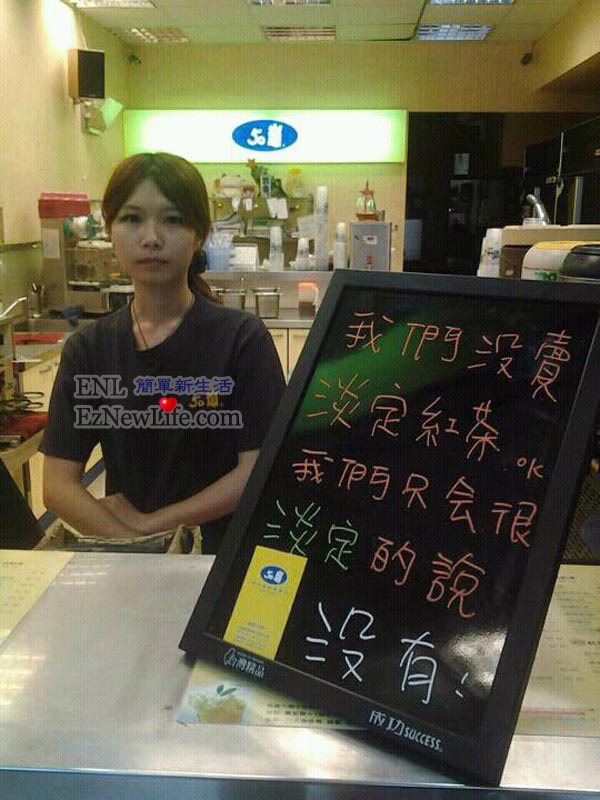 50嵐
ENL 簡單新生活
EzNewLife.com
50嵐
我們没賣
淡定紅茶.OK
我們只会很
淡定的說
没有!
50嵐
台灣精品
成功SUCCESS